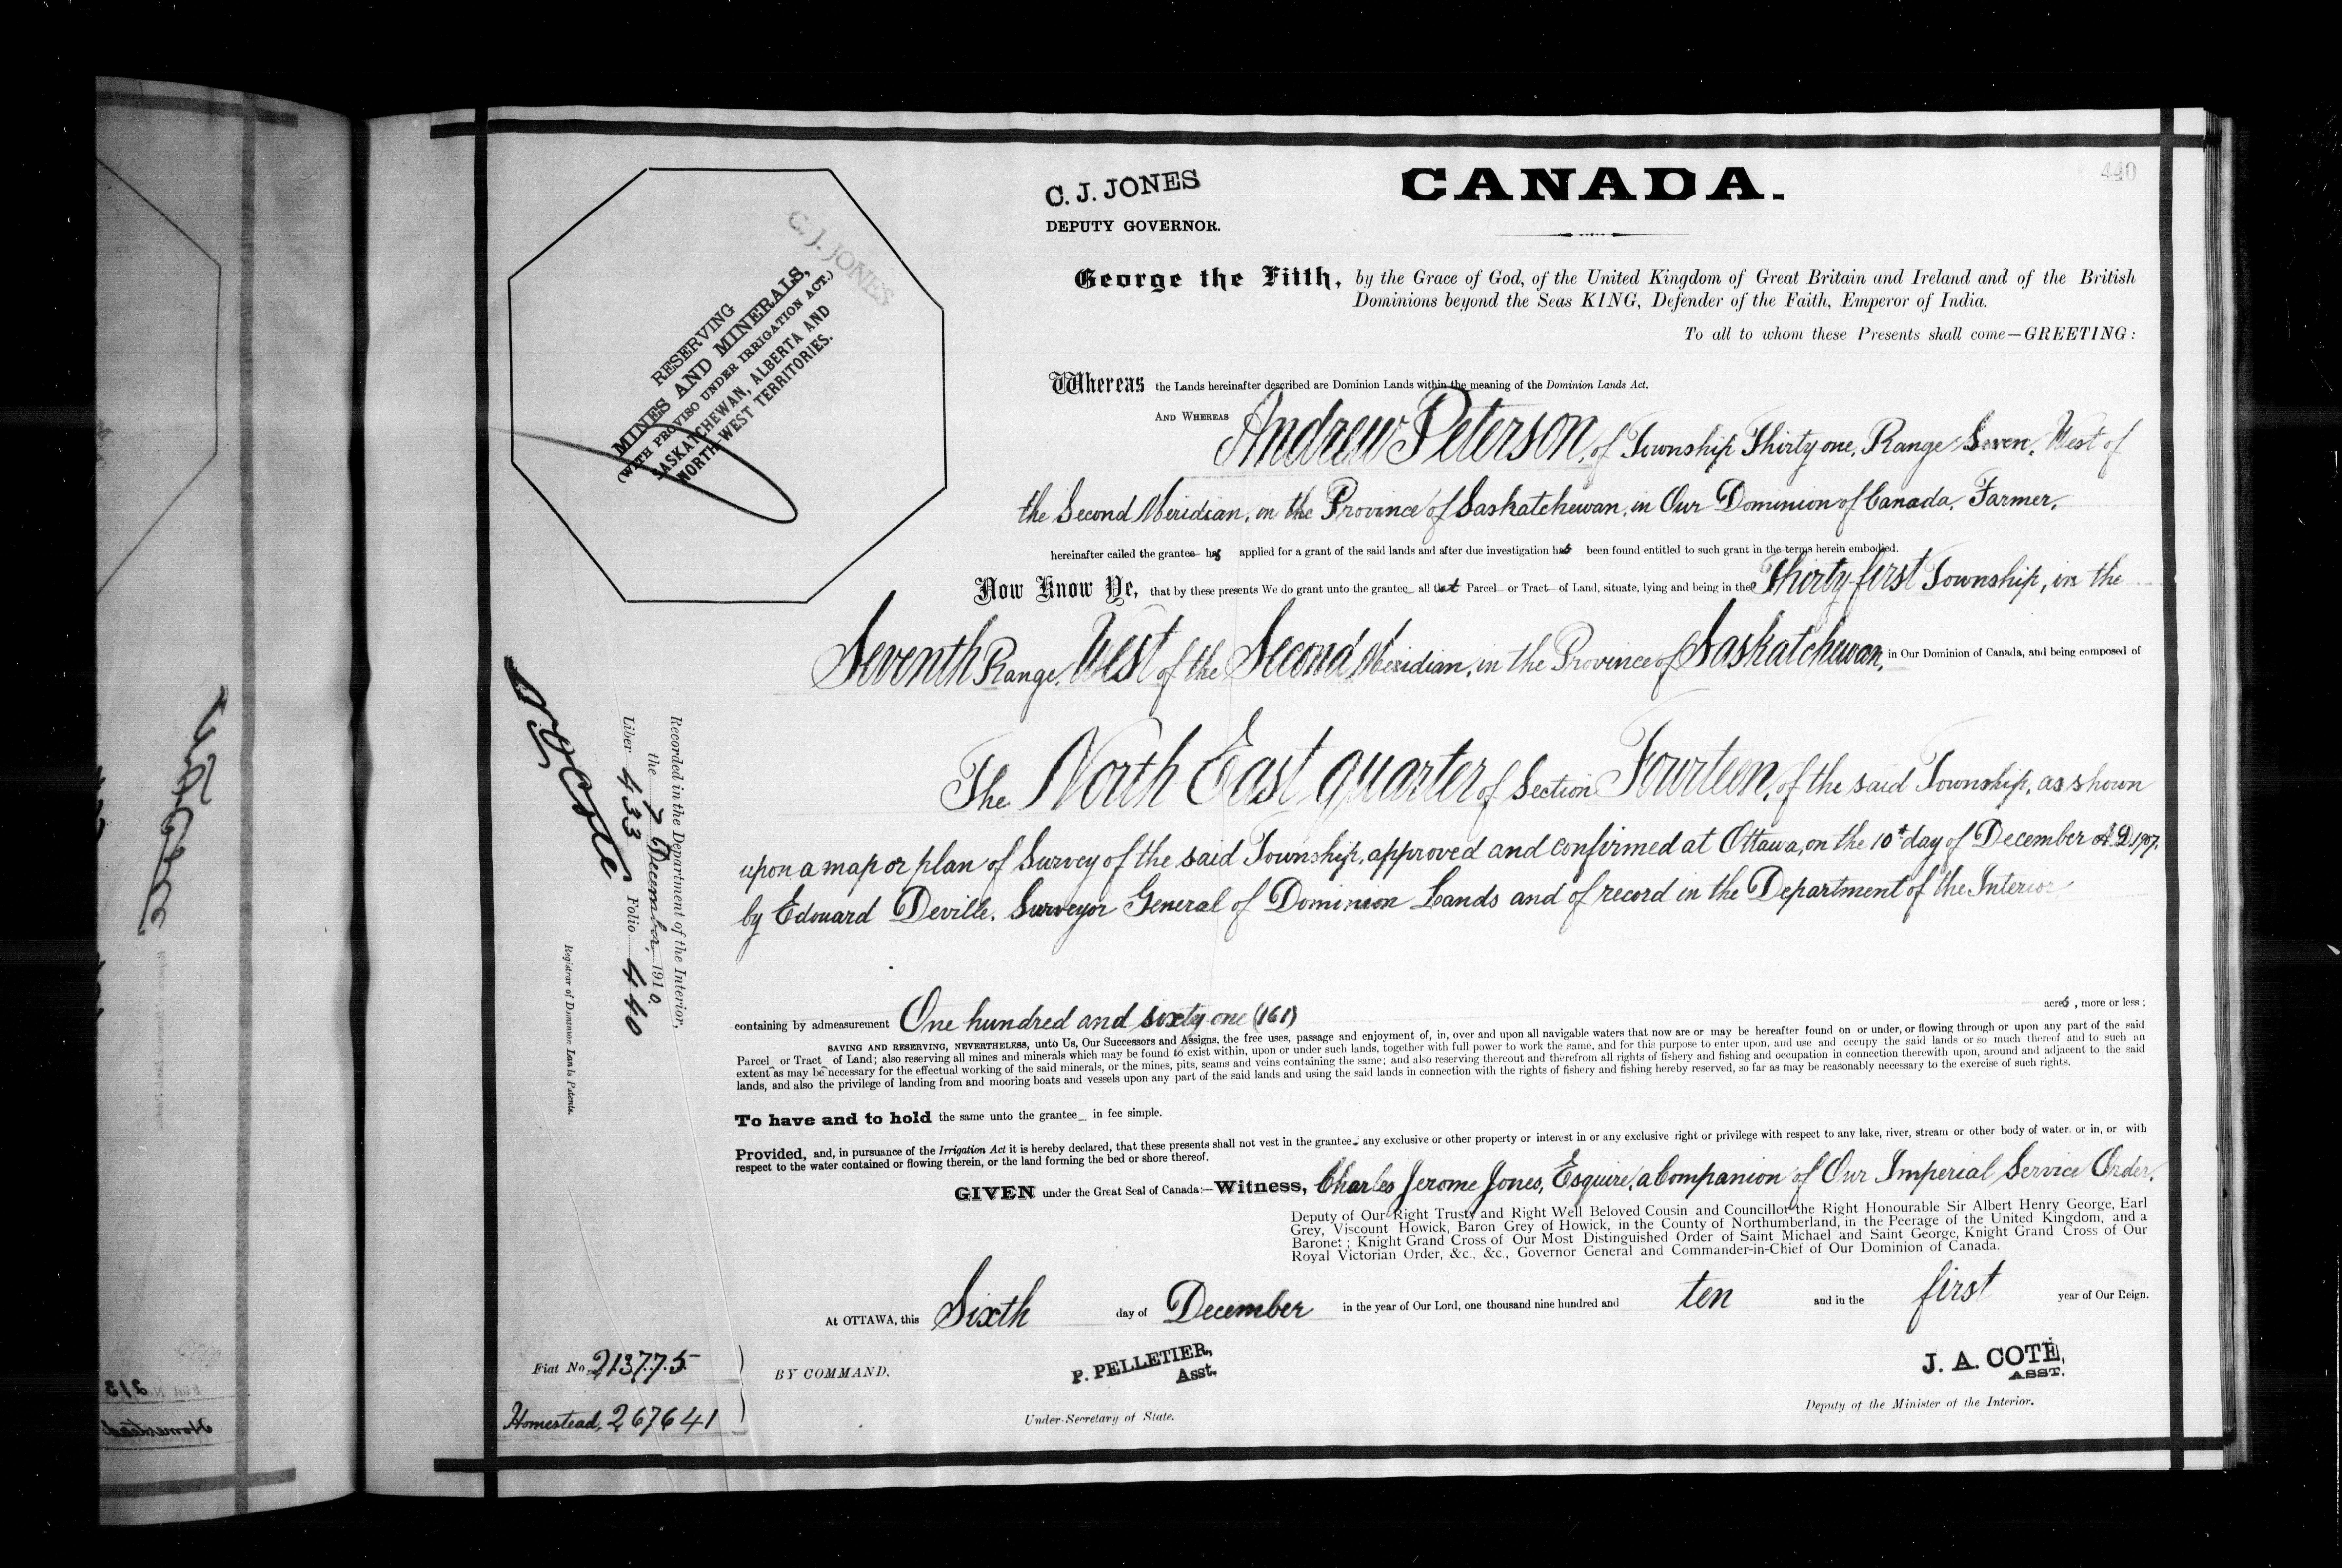 440
C. J. JONES
DEPUTY GOVERNOR.
CANADA.
George the Fifth, by the Grace of God, of the United Kingdom of Great Britain and Ireland and of the British
Dominions beyond the Seas KING, Defender of the Faith, Emperor of India.
To all to whom these Presents shall come—GREETING:
Whereas the Lands hereinafter described are Dominion Lands within the meaning of the Dominion Lands Act.
AND WHEREAS Andrew Peterson, of Township Thirty one, Range Seven, West of
the Second Meridian, in the Province of Saskatchewan, in Our Dominion of Canada, Farmer,
hereinafter called the grantee has applied for a grant of the said lands and after due investigation has been found entitled to such grant in the terms herein embodied.
Now Know Ye, that by these presents We do grant unto the grantee all that Parcel or Tract of Land, situate, lying and being in the Thirty-first Township, in the
Seventh Range, West of the Second Meridian, in the Province of Saskatchewan, in Our Dominion of Canada, and being composed of
The North East quarter of Section Fourteen, of the said Township, as shown
upon a map or plan of Survey of the said Township, approved and confirmed at Ottawa, on the 10th day of December A.D. 1907,
by Edouard Deville, Surveyor General of Dominion Lands and of record in the Department of the Interior
containing by admeasurement One hundred and sixty-one (161) acres, more or less;
SAVING AND RESERVING, NEVERTHELESS, unto Us, Our Successors and Assigns, the free uses, passage and enjoyment of, in, over and upon all navigable waters that now are or may be hereafter found on or under, or flowing through or upon any part of the said
Parcel or Tract of Land; also reserving all mines and minerals which may be found to exist within, upon or under such lands, together with full power to work the same, and for this purpose to enter upon, and use and occupy the said lands or so much thereof and to such an
extent as may be necessary for the effectual working of the said minerals, or the mines, pits, seams and veins containing the same; and also reserving thereout and therefrom all rights of fishery and fishing and occupation in connection therewith upon, around and adjacent to the said
lands, and also the privilege of landing from and mooring boats and vessels upon any part of the said lands and using the said lands in connection with the rights of fishery and fishing hereby reserved, so far as may be reasonably necessary to the exercise of such rights.
To have and to hold the same unto the grantee in fee simple.
Provided, and, in pursuance of the Irrigation Act it is hereby declared, that these presents shall not vest in the grantee any exclusive or other property or interest in or any exclusive right or privilege with respect to any lake, river, stream or other body of water. or in, or with
respect to the water contained or flowing therein, or the land forming the bed or shore thereof.
GIVEN under the Great Seal of Canada:—Witness, Charles Jerome Jones, Esquire, a Companion of Our Imperial Service Order,
Deputy of Our Right Trusty and Right Well Beloved Cousin and Councillor the Right Honourable Sir Albert Henry George, Earl
Grey, Viscount Howick, Baron Grey of Howick, in the County of Northumberland, in the Peerage of the United Kingdom, and a
Baronet; Knight Grand Cross of Our Most Distinguished Order of Saint Michael and Saint George, Knight Grand Cross of Our
Royal Victorian Order, &c., &c., Governor General and Commander-in-Chief of Our Dominion of Canada.
At OTTAWA, this Sixth day of December in the year of Our Lord, one thousand nine hundred and ten and in the first year of Our Reign.
BY COMMAND.
P. PELLETIER,
Asst.
Under-Secretary of State.
J. A. COTÉ,
ASST.
Deputy of the Minister of the Interior.
C. J. JONES
RESERVING
MINES AND MINERALS,
(WITH PROVISO UNDER IRRIGATION ACT.)
SASKATCHEWAN, ALBERTA AND
NORTH-WEST TERRITORIES.
Recorded in the Department of the Interior,
the 7 December, 1910.
Liber 433 Folio 440
Registrar of Dominion Lands Patents.
Fiat No. 213775
Homestead, 267641